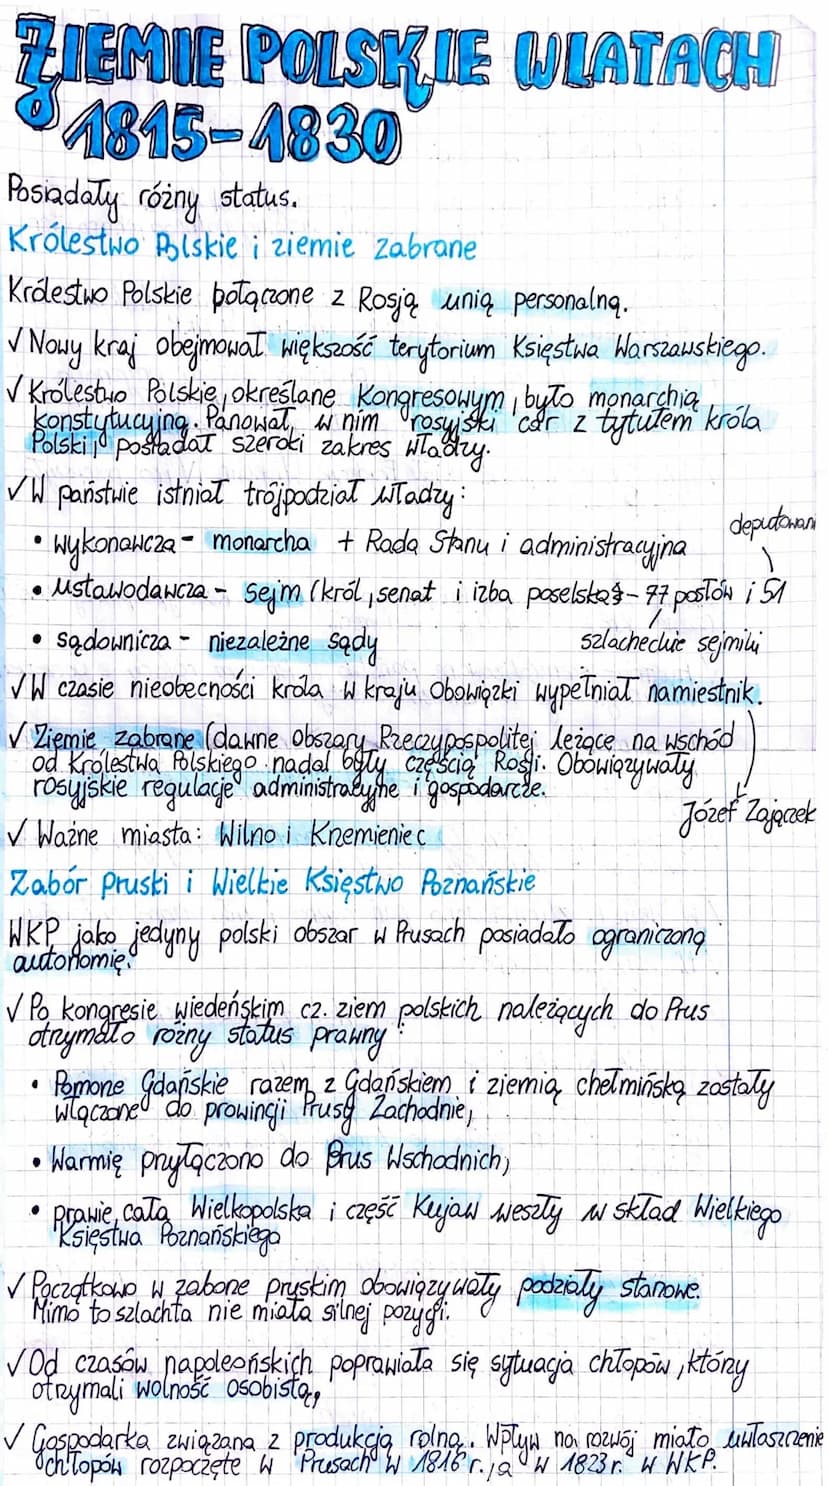 ZIEMIE POLSKIE W LATACH
1815-1830
Posiadały różny status.
Królestwo Polskie i ziemie zabrane
Królestwo Polskie połączone z Rosją unią personalną.
√ Nowy kraj obejmował większość terytorium Księstwa Warszawskiego.
√ Królestwo Polskie, określane Kongresowym, było monarchią
konstytucyjną. Panował w nim rosyjski car z tytułem króla
Polski, posiadał szeroki zakres władzy.
√ W państwie istniał trójpodział władzy:
deputowani
• wykonawcza - monarcha + Rada Stanu i administracyjna
• ustawodawcza - sejm (król, senat i izba poselska) - 77 posłów i 51
• sądownicza - niezależne sądy
szlacheckie sejmiki
√ W czasie nieobecności króla w kraju obowiązki wypełniał namiestnik.
√ Ziemie zabrane (dawne obszary Rzeczypospolitej leżące na wschód
od Królestwa Polskiego nadal były częścią Rosji. Obowiązywały
rosyjskie regulacje administracyjne i gospodarcze.
Józef Zajączek
√ Ważne miasta: Wilno i Krzemieniec
Zabór Pruski i Wielkie Księstwo Poznańskie
WKP jako jedyny polski obszar w Prusach posiadało ograniczoną
autonomię.
√ Po kongresie wiedeńskim cz. ziem polskich należących do Prus
otrzymało różny status prawny:
• Pomorze Gdańskie razem z Gdańskiem i ziemią chełmińską zostały
włączone do prowincji Prusy Zachodnie,
• Warmię przyłączono do Prus Wschodnich,
• prawie cała Wielkopolska i część Kujaw weszły w skład Wielkiego
Księstwa Poznańskiego
√ Początkowo w zaborze pruskim obowiązywały podziały stanowe.
Mimo to szlachta nie miała silnej pozycji.
√ Od czasów napoleońskich poprawiała się sytuacja chłopów, który
otrzymali wolność osobistą,
√ Gospodarka związana z produkcją rolną. Wpływ na rozwój miało uwłaszczenie
chłopów rozpoczęte w Prusach w 1816 r., a w 1823 r. w WKP.